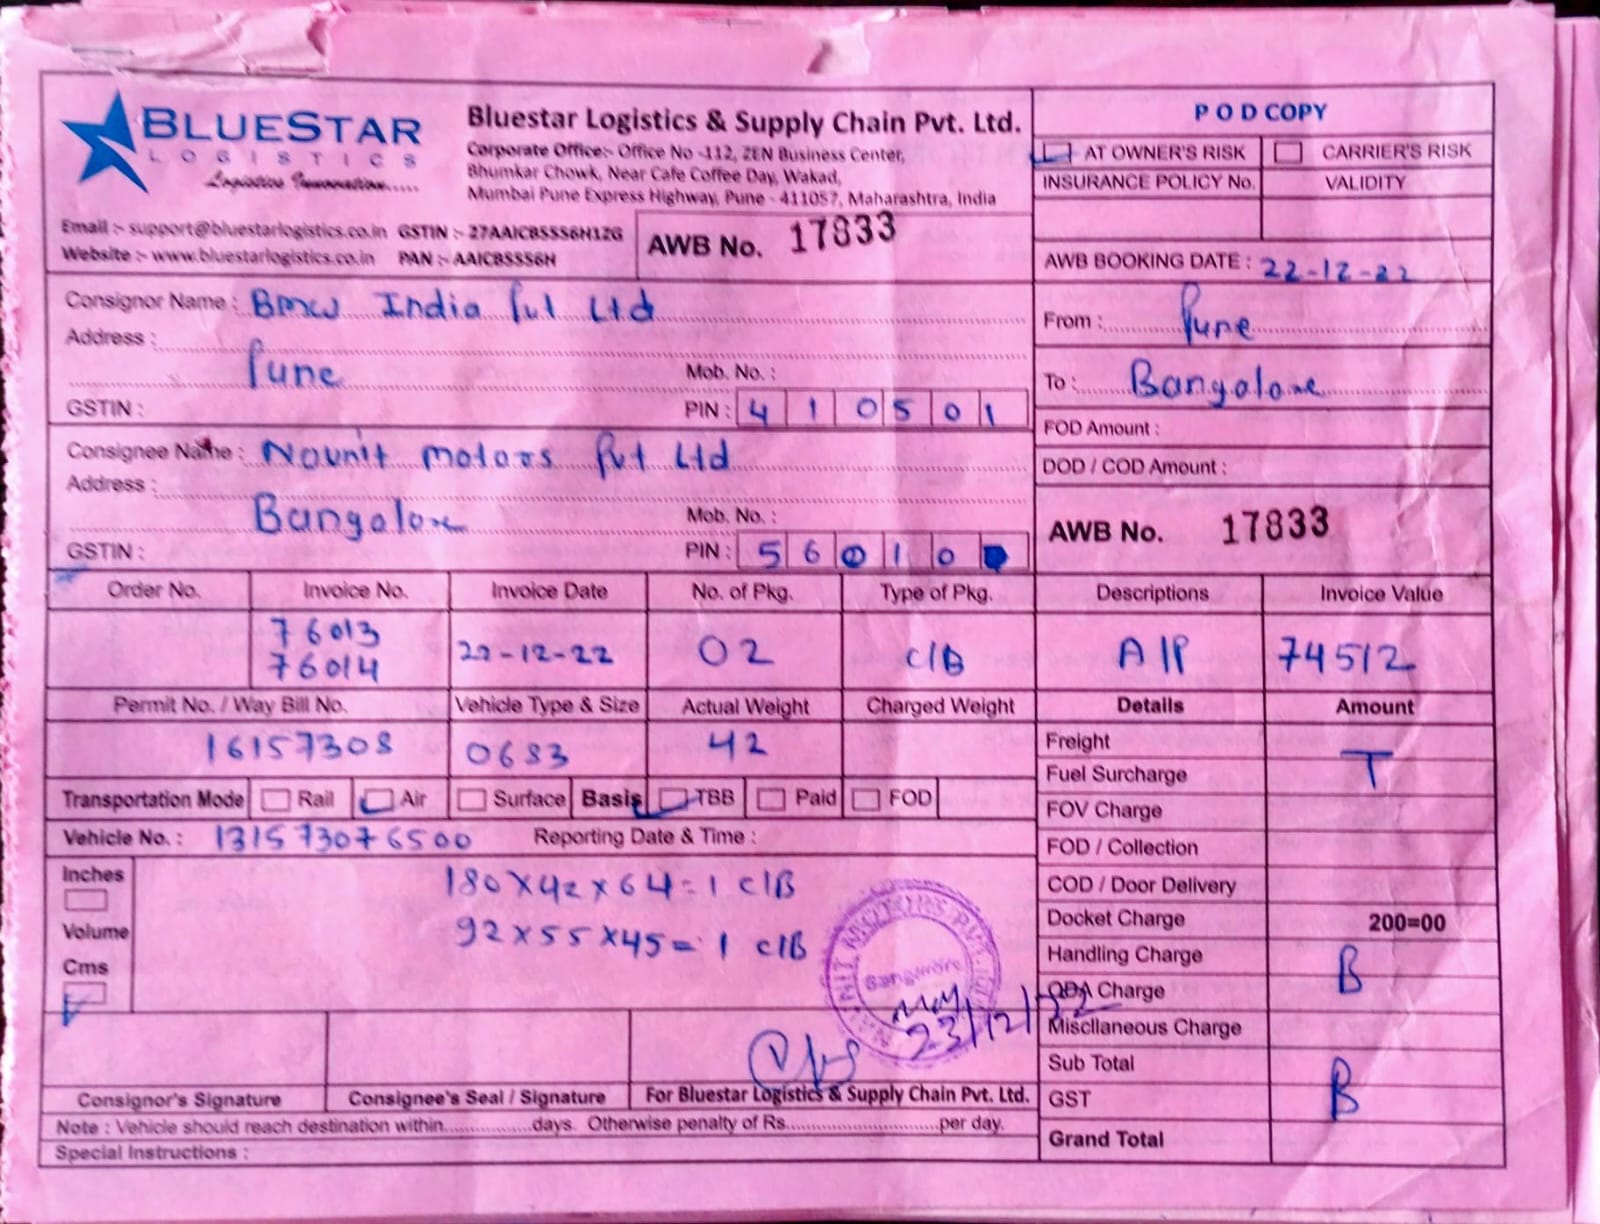 BLUESTAR
LOGISTICS
Logistics Innovation.....
Bluestar Logistics & Supply Chain Pvt. Ltd.
Corporate Office:- Office No -112, ZEN Business Center,
Bhumkar Chowk, Near Cafe Coffee Day, Wakad,
Mumbai Pune Express Highway, Pune - 411057, Maharashtra, India
Email :- support@bluestarlogistics.co.in GSTIN :- 27AAICB5556H1ZG
Website :- www.bluestarlogistics.co.in PAN :- AAICB5556H
AWB No. 17833
POD COPY
AT OWNER'S RISK CARRIER'S RISK
INSURANCE POLICY No. VALIDITY
AWB BOOKING DATE : 22-12-22
From : Pune
To : Bangalore
FOD Amount :
DOD / COD Amount :
AWB No. 17833
Consignor Name : BMW India Pvt Ltd
Address :
Pune Mob. No. :
GSTIN : PIN : 410501
Consignee Name : Navnit motors Pvt Ltd
Address :
Bangalore Mob. No. :
GSTIN : PIN : 56010
Order No. Invoice No. Invoice Date No. of Pkg. Type of Pkg. Descriptions Invoice Value
76013
76014 22-12-22 02 C/B A/P 74512
Permit No. / Way Bill No. Vehicle Type & Size Actual Weight Charged Weight Details Amount
16157308 0683 42
Freight
Fuel Surcharge T
FOV Charge
FOD / Collection
COD / Door Delivery
Docket Charge 200=00
Handling Charge B
ODA Charge
Miscllaneous Charge
Sub Total
GST B
Grand Total
Transportation Mode Rail Air Surface Basis TBB Paid FOD
Vehicle No. : 131573076500 Reporting Date & Time :
Inches
Volume
Cms
180X42X64=1 C/B
92X55X45=1 C/B
NAVNIT MOTORS PVT. LTD
Bangalore
23/12/22
Consignor's Signature Consignee's Seal / Signature For Bluestar Logistics & Supply Chain Pvt. Ltd.
Note : Vehicle should reach destination within.................days. Otherwise penalty of Rs..............................per day.
Special Instructions :